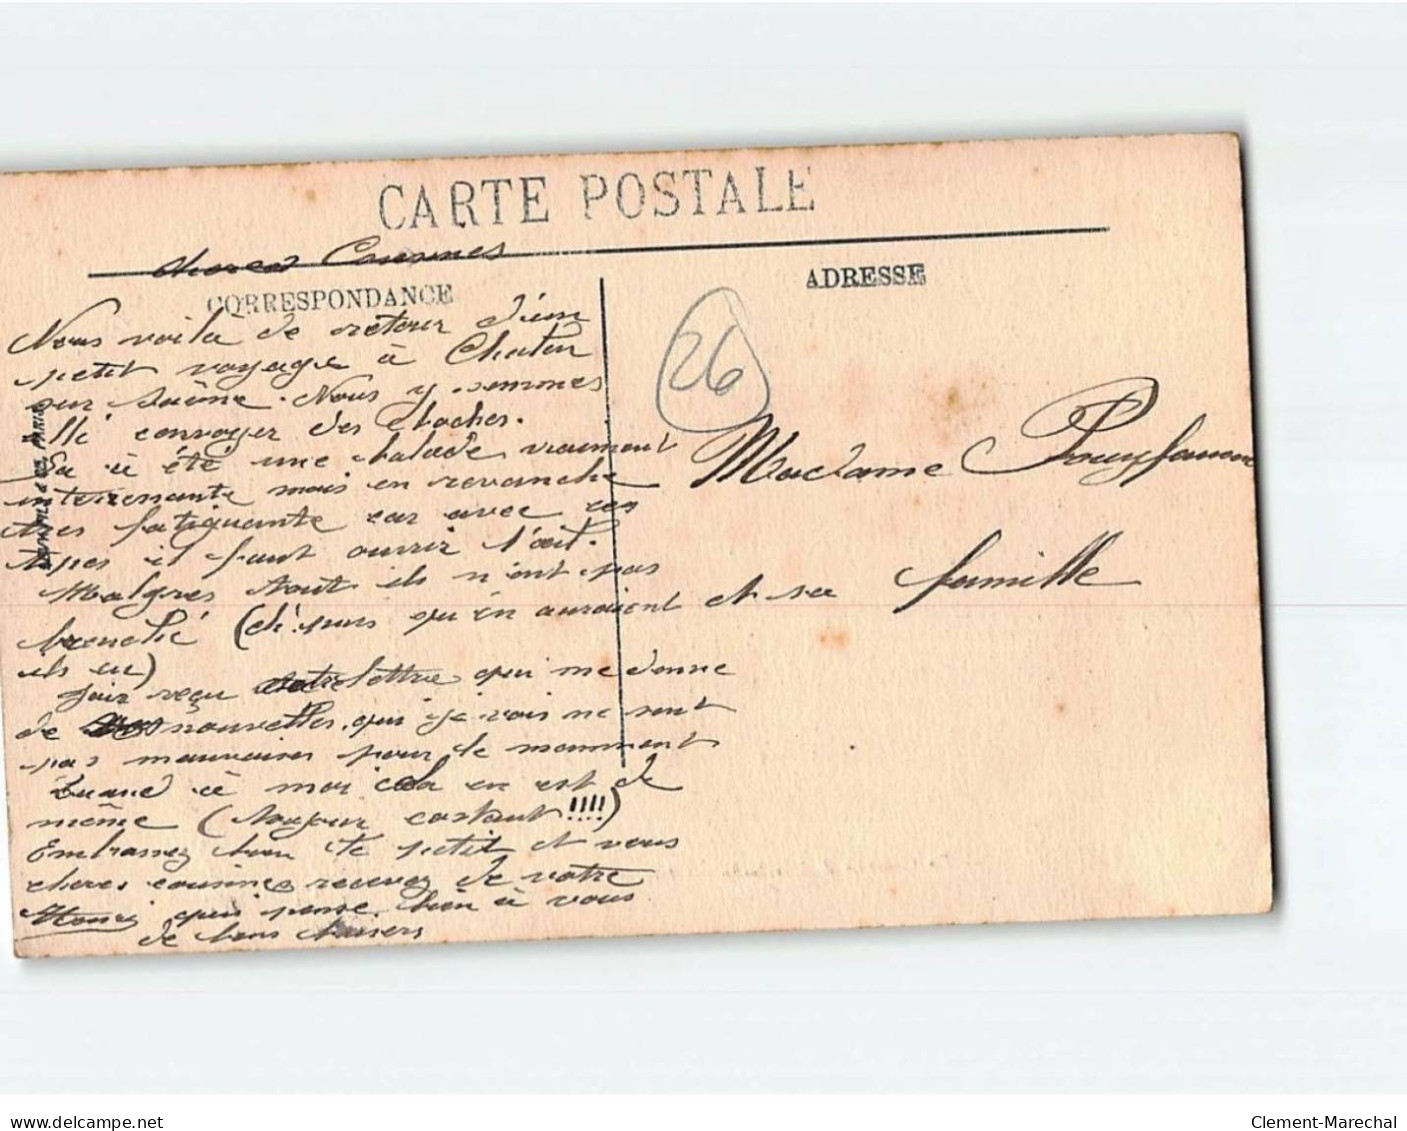 CARTE POSTALE
Cousines
CORRESPONDANCE
ADRESSE
26
Nous voilà de retour d'un
petit voyage à Chalon
sur Saône. Nous y sommes
allé convoyer des Boches.
Sa à été une balade vraiment
interressante mais en revanche
tres fatiguante car avec ces
types il faut ouvrir l'oeil.
Malgres tout ils n'ont pas
bronché (et puis qu'en auraient
ils eu)
J'air reçu votre lettre qui me donne
de nouvelles, qui je vois ne sont
pas mauvaises pour le momment
Quand à moi cela en est de
même (toujour constant !!!!)
Embrassez bien le petit et vous
cheres cousines recevez de votre
Henri qui pense bien à vous
de bons baisers
Madame
et sa famille
PARIS
delcampe.net
Clement-Marechal